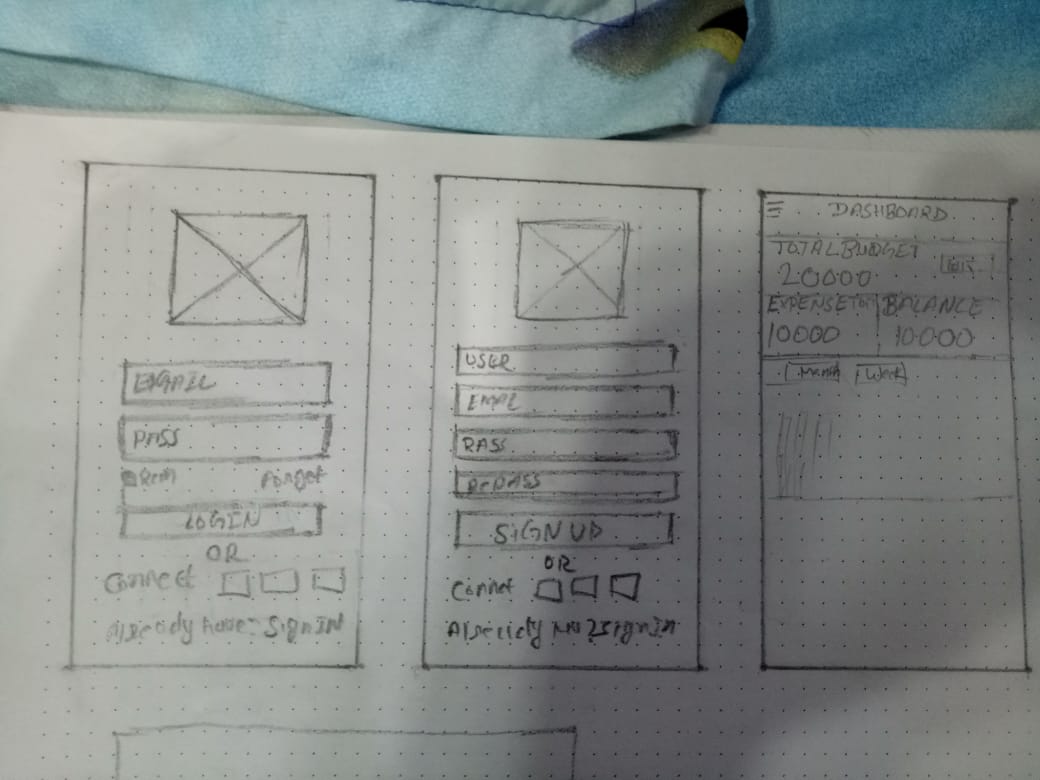 EMAIL
PASS
Rem Forget
LOGIN
OR
Connect
Already have SignIN
USER
EMAL
PASS
REPASS
SIGN UP
OR
Connet
Already SignIn
DASHBOARD
TOTAL BUDGET
20000
EXPENSE BALANCE
10000 10000
Month Week